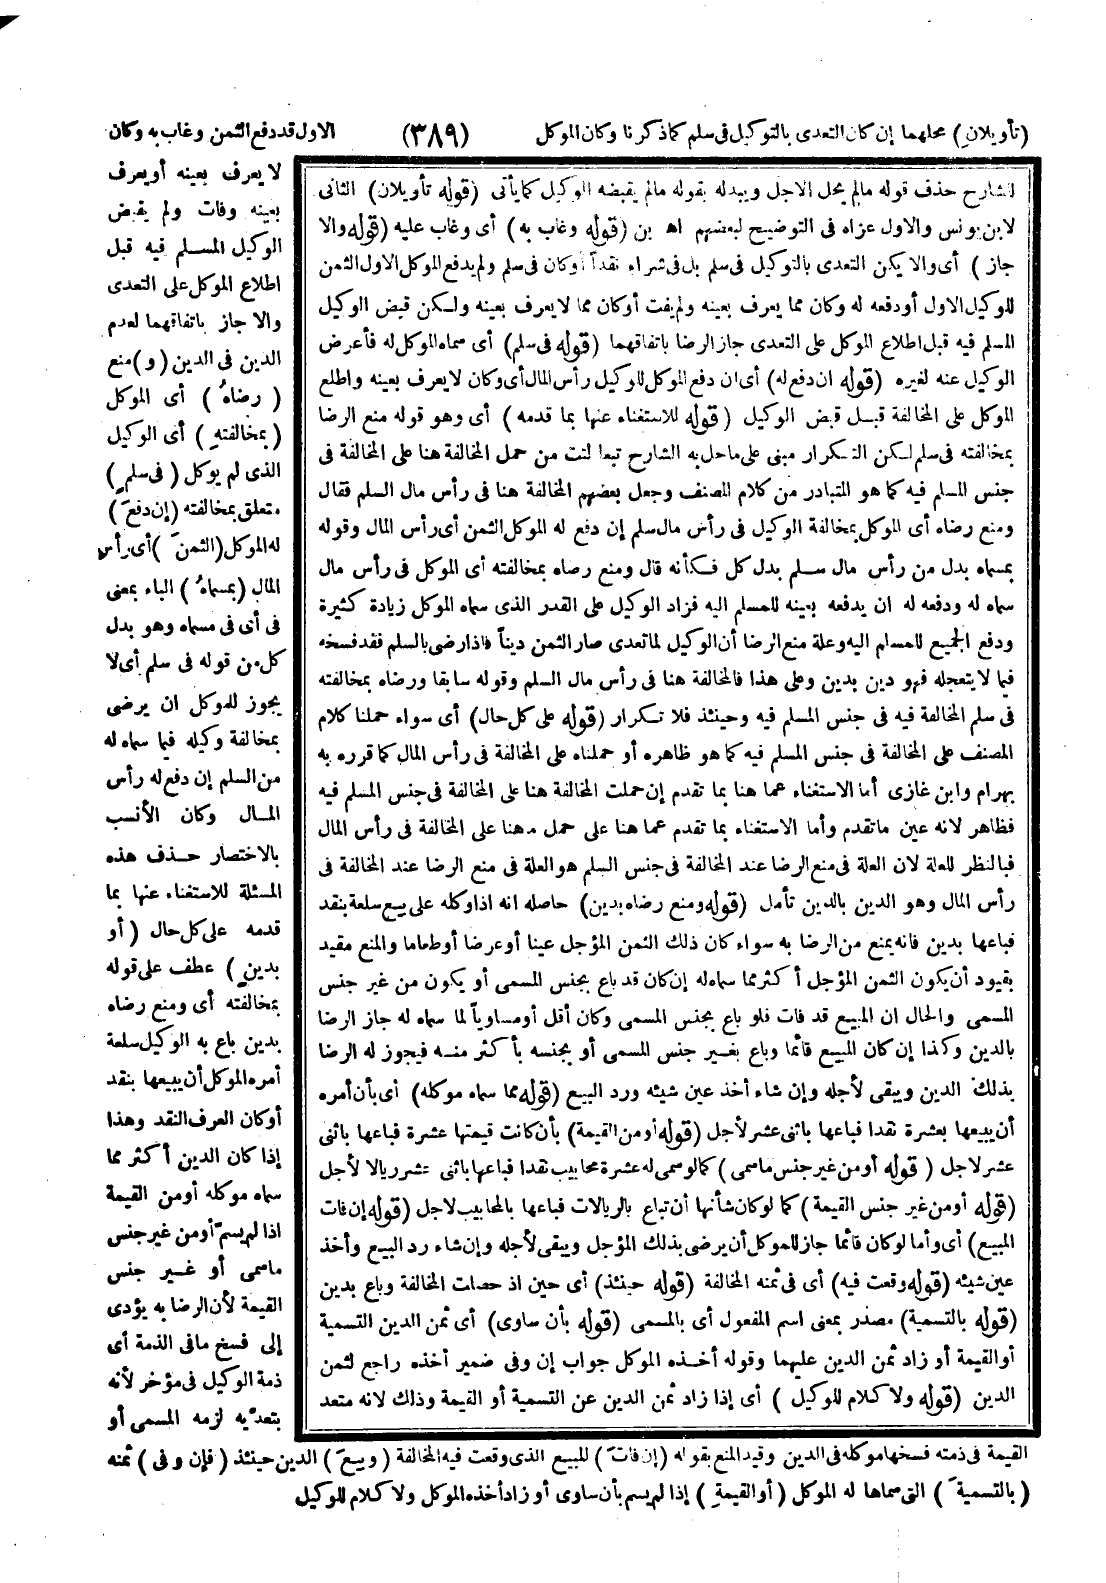 (تأويلانِ) محلهما إن كان التعدى بالتوكيل فى سلم كما ذكرنا وكان الموكل (٣٨٩) الاول قد دفع الثمن وغاب به وكان
لا يعرف بعينه أو يعرف
بعينه وفات ولم يقبض
الوكيل المسلم فيه قبل
اطلاع الموكل على التعدى
والا جاز باتفاقهما لعدم
الدين فى الدين (و) منع
( رضاهُ ) أى الموكل
(بمخالفتهِ ) أى الوكيل
الذى لم يوكل ( فى سلمٍ )
متعلق بمخالفته (إن دفعَ )
له الموكل (الثمنَ ) أى رأس
المال (بمسماهُ ) الباء بمعنى
فى أى فى مسماه وهو بدل
كل من قوله فى سلم أى لا
يجوز للموكل ان يرضى
بمخالفة وكيله فيما سماه له
من السلم إن دفع له رأس
المال وكان الأنسب
بالاختصار حذف هذه
المسئلة للاستغناء عنها بما
قدمه على كل حال (أو
بدينٍ ) عطف على قوله
بمخالفته أى ومنع رضاه
بدين باع به الوكيل سلعة
أمره الموكل أن يبيعها بنقد
أو كان العرف النقد وهذا
إذا كان الدين أكثر مما
سماه موكله أو من القيمة
اذا لم يسمّ أو من غير جنس
ما سمى أو غير جنس
القيمة لأن الرضا به يؤدى
إلى فسخ ما فى الذمة أى
ذمة الوكيل فى مؤخر لأنه
بتعدّيه لزمه المسمى أو
القيمة فى ذمته فسخها موكله فى الدين وقيد المنع بقوله (إن فاتَ ) للبيع الذى وقعت فيه المخالفة (وبيعَ ) الدين حينئذ (فإن وفى ) ثمنه
( بالتسميةَ ) التى سماها له الموكل ( أو القيمةِ ) إذا لم يسم بأن ساوى أو زاد أخذه الموكل ولا كلام للوكيل
الشارح حذف قوله مالم يحل الاجل ويبدله بقوله مالم يقبضه الوكيل كما يأتى (قوله تأويلان) الثانى
لابن يونس والاول عزاه فى التوضيح لبعضهم اه بن (قوله وغاب به ) أى وغاب عليه (قوله والا
جاز ) أى والا يكن التعدى بالتوكيل فى سلم بل فى شراء نقدا أو كان فى سلم ولم يدفع الموكل الاول الثمن
للوكيل الاول أو دفعه له وكان مما يعرف بعينه ولم يفت أو كان مما لا يعرف بعينه ولكن قبض الوكيل
المسلم فيه قبل اطلاع الموكل على التعدى جاز الرضا باتفاقهما (قوله فى سلم) أى سماه الموكل له فأعرض
الوكيل عنه لغيره (قوله ان دفع له) أى ان دفع الموكل للوكيل رأس المال أى وكان لا يعرف بعينه واطلع
الموكل على المخالفة قبل قبض الوكيل (قوله للاستغناء عنها بما قدمه ) أى وهو قوله منع الرضا
بمخالفته فى سلم لكن التكرار مبنى على ما حل به الشارح تبعا لتت من حمل المخالفة هنا على المخالفة فى
جنس المسلم فيه كما هو المتبادر من كلام المصنف وجعل بعضهم المخالفة هنا فى رأس مال السلم فقال
ومنع رضاه أى الموكل بمخالفة الوكيل فى رأس مال سلم إن دفع له الموكل الثمن أى رأس المال وقوله
بمسماه بدل من رأس مال سلم بدل كل فكأنه قال ومنع رضاه بمخالفته أى الموكل فى رأس مال
سماه له ودفعه له ان يدفعه بعينه للمسلم اليه فزاد الوكيل على القدر الذى سماه الموكل زيادة كثيرة
ودفع الجميع للمسلم اليه وعلة منع الرضا أن الوكيل لما تعدى صار الثمن دينا فاذا رضى بالسلم فقد فسخه
فيما لا يتعجله فهو دين بدين وعلى هذا فالمخالفة هنا فى رأس مال السلم وقوله سابقا ورضاه بمخالفته
فى سلم المخالفة فيه فى جنس المسلم فيه وحينئذ فلا تكرار (قوله على كل حال) أى سواء حملنا كلام
المصنف على المخالفة فى جنس المسلم فيه كما هو ظاهره أو حملناه على المخالفة فى رأس المال كما قرره به
بهرام وابن غازى أما الاستغناء عما هنا بما تقدم إن حملت المخالفة هنا على المخالفة فى جنس المسلم فيه
فظاهر لانه عين ما تقدم وأما الاستغناء بما تقدم عما هنا على حمل ما هنا على المخالفة فى رأس المال
فبالنظر للعلة لان العلة فى منع الرضا عند المخالفة فى جنس السلم هو العلة فى منع الرضا عند المخالفة فى
رأس المال وهو الدين بالدين تأمل (قوله ومنع رضاه بدين) حاصله انه اذا وكله على بيع سلعة بنقد
فباعها بدين فانه يمنع من الرضا به سواء كان ذلك الثمن المؤجل عينا أو عرضا أو طعاما والمنع مقيد
بقيود أن يكون الثمن المؤجل أكثر مما سماه له إن كان قد باع بجنس المسمى أو يكون من غير جنس
المسمى والحال ان المبيع قد فات فلو باع بجنس المسمى وكان أقل أو مساوياً لما سماه له جاز الرضا
بالدين وكذا إن كان المبيع قائما وباع بغير جنس المسمى أو بجنسه بأكثر منه فيجوز له الرضا
بذلك الدين ويبقى لأجله وإن شاء أخذ عين شيئه ورد البيع (قوله مما سماه موكله) أى بأن أمره
أن يبيعها بعشرة نقدا فباعها باثنى عشر لأجل (قوله أو من القيمة) بأن كانت قيمتها عشرة فباعها باثنى
عشر لاجل ( قوله أو من غير جنس ما سمى ) كما لو سمى له عشرة محابيب نقدا فباعها باثنى عشر ريالا لأجل
(قوله أو من غير جنس القيمة ) كما لو كان شأنها أن تباع بالريالات فباعها بالمحابيب لاجل (قوله إن فات
المبيع) أى وأما لو كان قائما جاز للموكل أن يرضى بذلك المؤجل ويبقى لأجله وإن شاء رد البيع وأخذ
عين شيئه (قوله وقعت فيه) أى فى ثمنه المخالفة (قوله حينئذ) أى حين اذ حصلت المخالفة وباع بدين
(قوله بالتسمية) مصدر بمعنى اسم المفعول أى بالمسمى (قوله بأن ساوى) أى ثمن الدين التسمية
أو القيمة أو زاد ثمن الدين عليهما وقوله أخذه الموكل جواب إن وفى ضمير أخذه راجع لثمن
الدين (قوله ولا كلام للوكيل ) أى إذا زاد ثمن الدين عن التسمية أو القيمة وذلك لانه متعد